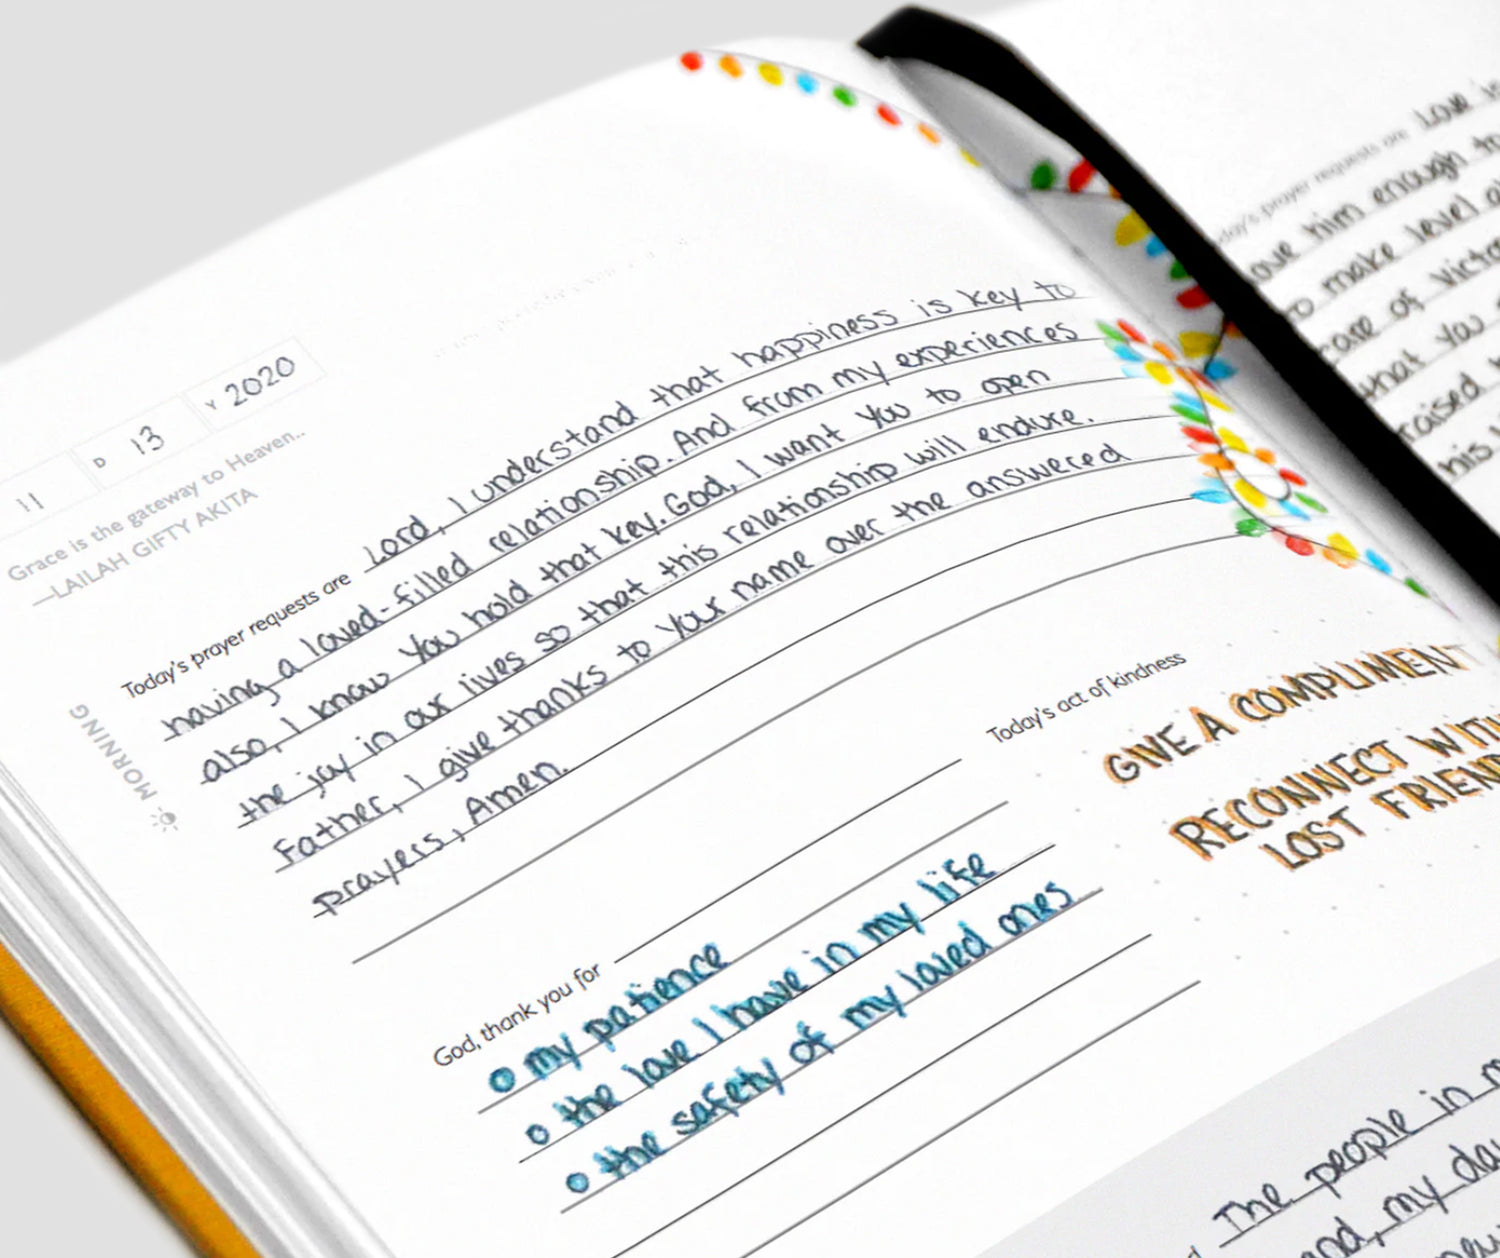 11 D 13 Y 2020
Grace is the gateway to Heaven..
—LAILAH GIFTY AKITA
MORNING
Today's prayer requests are Lord, I understand that happiness is key to
having a loved-filled relationship. And from my experiences
also, I know You hold that key. God, I want You to open
the joy in our lives so that this relationship will endure.
Father, I give thanks to Your name over the answered
prayers, Amen.
God, thank you for
my patience
the love I have in my life
the safety of my loved ones
Today's act of kindness
GIVE A COMPLIMENT
RECONNECT WITH
LOST FRIEND
The people in
and, my day
prayer requests are Love is
love him enough to
to make level
care of
that You
raised
his